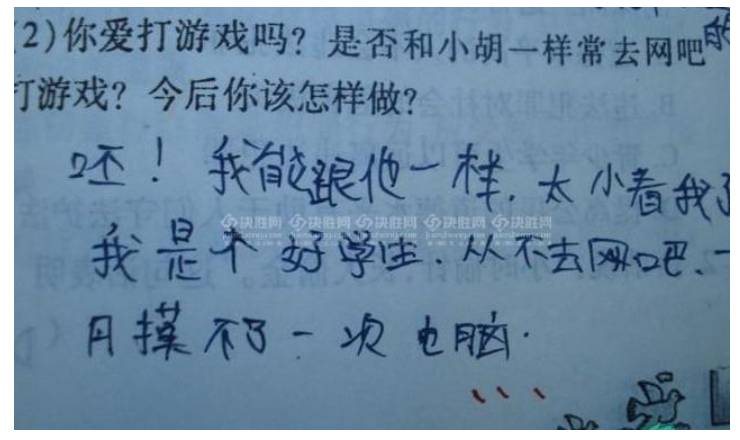 (2)你爱打游戏吗？是否和小胡一样常去网吧的
打游戏？今后你该怎样做？
呸！我能跟他一样，太小看我了
决胜网 决胜网 决胜网 决胜网 决胜网
我是个好学生．从不去网吧、一
月摸不了一次电脑．